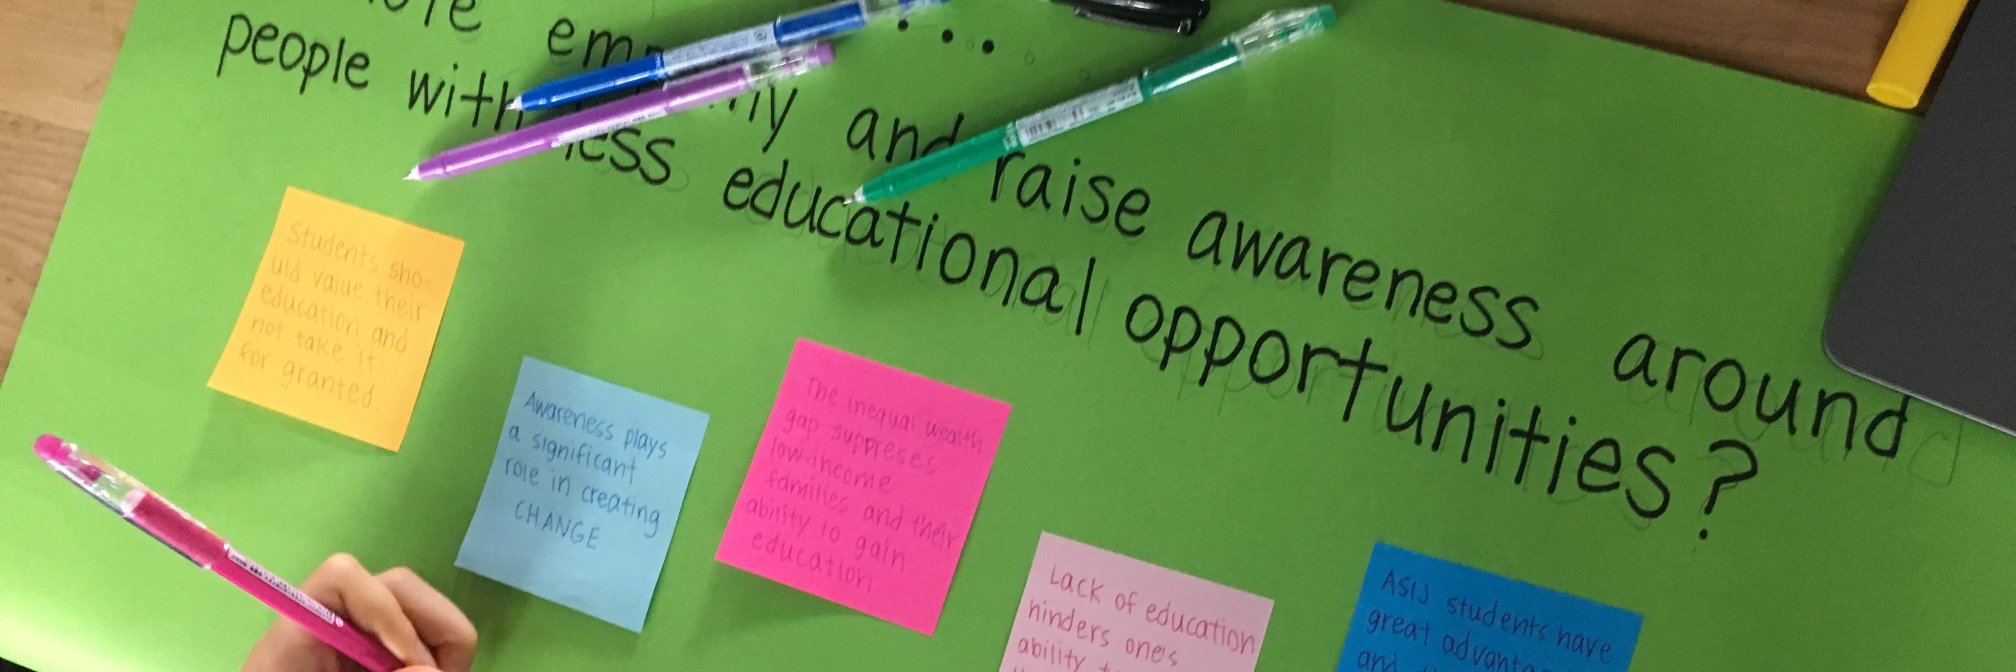 ...
and raise awareness around
people with less educational opportunities?
Students sho-
uld value their
education and
not take it
for granted.
Awareness plays
a significant
role in creating
CHANGE
The inequal wealth
gap suppreses
low-income
families and their
ability to gain
education
Lack of education
hinders one's
ability
ASIJ students have
great
and